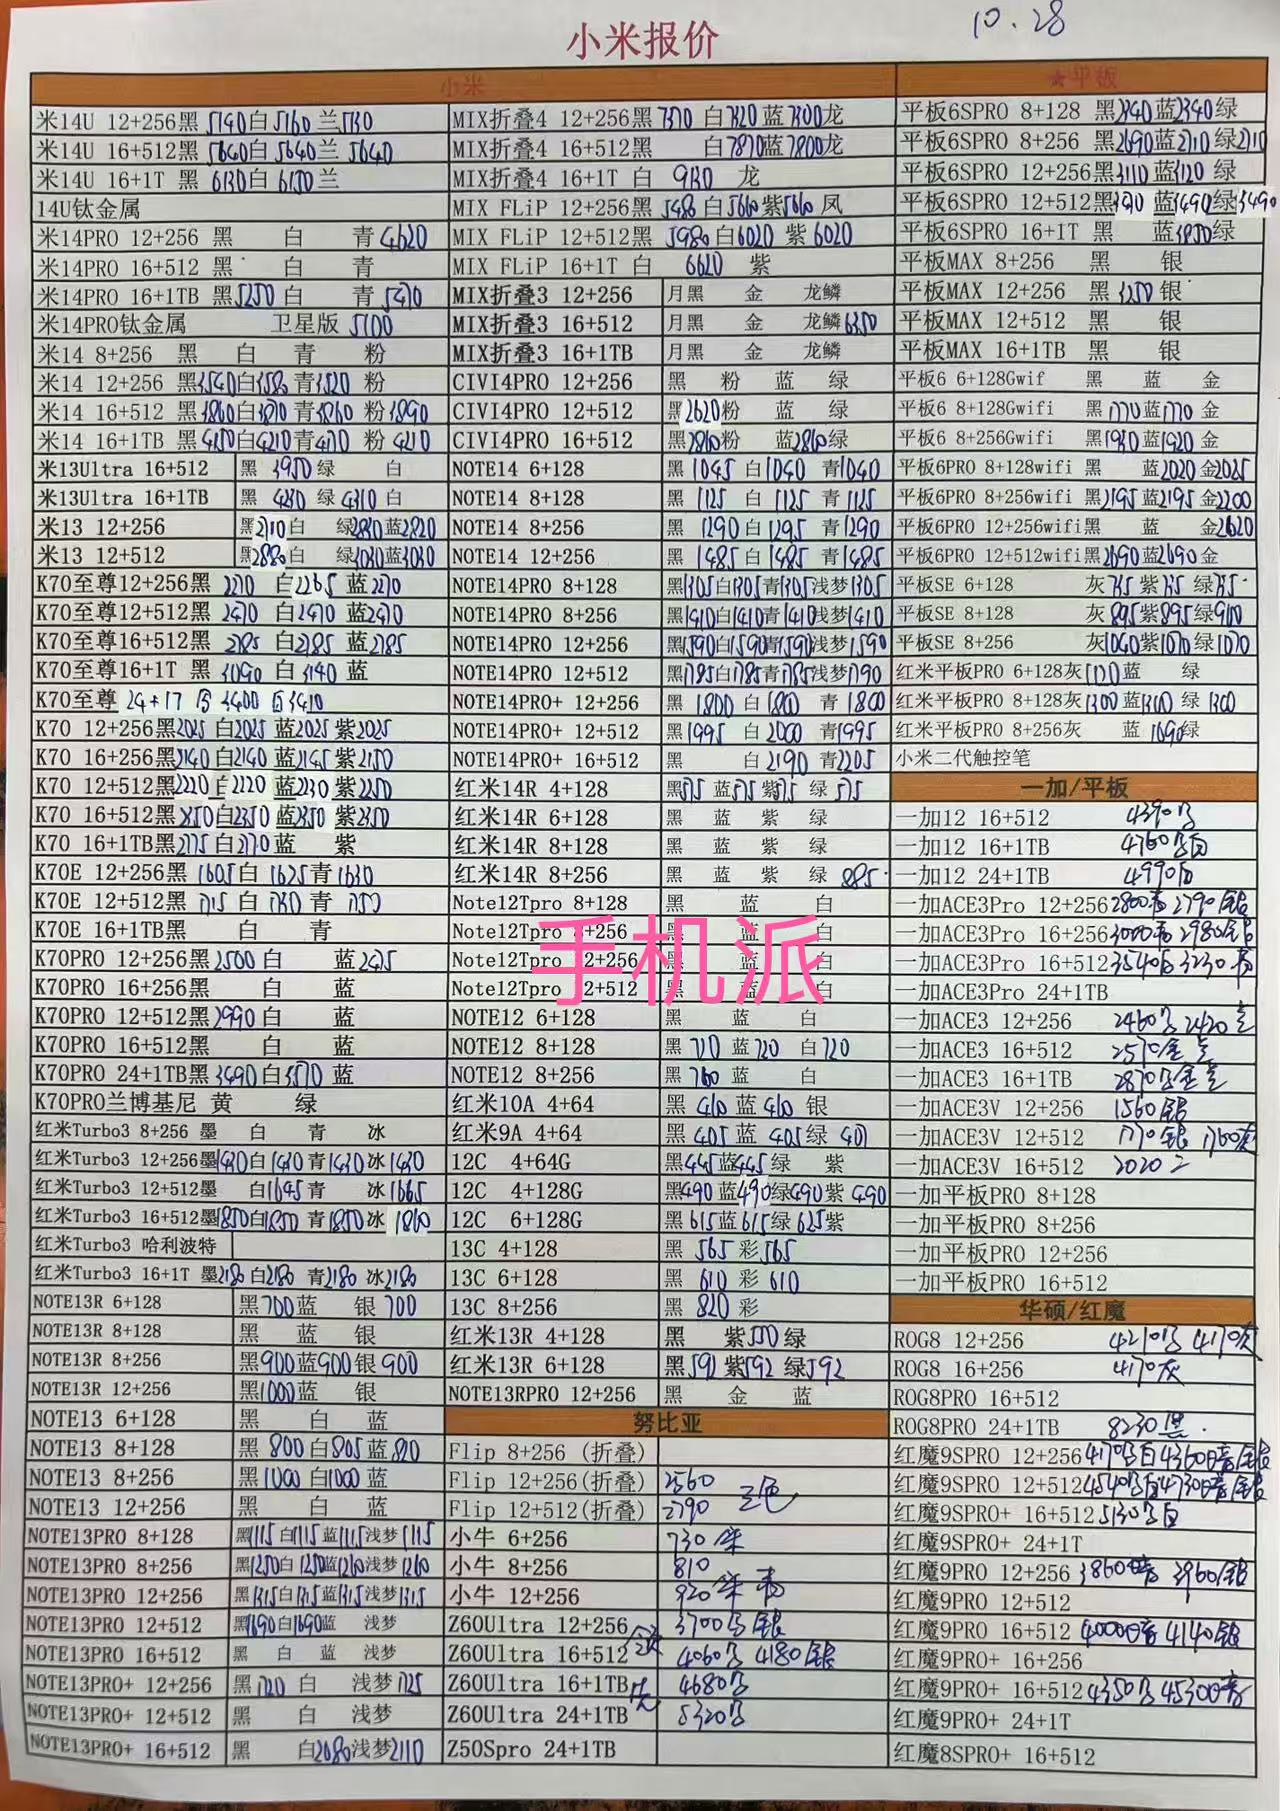 10.28
小米报价
小米
米14U 12+256黑 5140白5160 兰5130
米14U 16+512黑5640白5640兰 5640
米14U 16+1T 黑 6130白 6150 兰
14U钛金属
米14PRO 12+256 黑 白 青4620
米14PRO 16+512 黑 白 青
米14PRO 16+1TB 黑5250白 青
米14PRO钛金属 卫星版 5100
米14 8+256 黑 白 青 粉
米14 12+256 黑3540白3580青3520 粉
米14 16+512 黑3860白3870青3860 粉3890
米14 16+1TB 黑4150白4210青 粉 4210
米13Ultra 16+512 黑 3950绿 白
米13Ultra 16+1TB 黑 绿 4310 白
米13 12+256 黑 白 绿 蓝2820
米13 12+512 黑2880白 绿3030蓝3030
K70至尊12+256黑 白2265 蓝
K70至尊12+512黑 2470 白2470 蓝2470
K70至尊16+512黑 2785 白2785 蓝2785
K70至尊16+1T 黑 3090 白3140 蓝
K70至尊 24+1T 3400 白3410
K70 12+256黑2025白2025蓝2025紫2025
K70 16+256黑2140白2140蓝2145紫2150
K70 12+512黑2220白2220蓝2230紫2250
K70 16+512黑2350白2350蓝2350紫2350
K70 16+1TB黑2775白2770蓝 紫
K70E 12+256黑 1605白1625青1630
K70E 12+512黑 1715白 青
K70E 16+1TB黑 白 青
K70PRO 12+256黑2500白 蓝2475
K70PRO 16+256黑 白 蓝
K70PRO 12+512黑2990白 蓝
K70PRO 16+512黑 白 蓝
K70PRO 24+1TB黑3490白3570蓝
K70PRO兰博基尼 黄 绿
红米Turbo3 8+256 墨 白 青 冰
红米Turbo3 12+256墨1430白1430青1430冰1430
红米Turbo3 12+512墨 白1645青 冰1665
红米Turbo3 16+512墨1850白1850 青1850冰 1860
红米Turbo3 哈利波特
红米Turbo3 16+1T 墨2180白2180 青2180 冰2180
NOTE13R 6+128 黑700蓝 银700
NOTE13R 8+128 黑 蓝 银
NOTE13R 8+256 黑900蓝900银900
NOTE13R 12+256 黑1000蓝 银
NOTE13 6+128 黑 白 蓝
NOTE13 8+128 黑 800白805蓝820
NOTE13 8+256 黑1000白1000蓝
NOTE13 12+256 黑 白 蓝
NOTE13PRO 8+128 黑1115白1115蓝1115浅梦1115
NOTE13PRO 8+256 黑1250白1250蓝1260浅梦1260
NOTE13PRO 12+256 黑1315白1315蓝1315浅梦1315
NOTE13PRO 12+512 黑1690白1690蓝 浅梦
NOTE13PRO 16+512 黑 白 蓝 浅梦
NOTE13PRO+ 12+256 黑1720 白 浅梦1725
NOTE13PRO+ 12+512 黑 白 浅梦
NOTE13PRO+ 16+512 黑 白2080浅梦2110
MIX折叠4 12+256黑 白7320蓝7300龙
MIX折叠4 16+512黑 白7870蓝7800龙
MIX折叠4 16+1T 白 9130 龙
MIX FLiP 12+256黑 5480白5660紫5660 凤
MIX FLiP 12+512黑 5980白6020 紫6020
MIX FLiP 16+1T 白 6620 紫
MIX折叠3 12+256 月黑 金 龙鳞
MIX折叠3 16+512 月黑 金 龙鳞6350
MIX折叠3 16+1TB 月黑 金 龙鳞
CIVI4PRO 12+256 黑 粉 蓝 绿
CIVI4PRO 12+512 黑2620粉 蓝 绿
CIVI4PRO 16+512 黑2860粉 蓝2860绿
NOTE14 6+128 黑1045 白1040 青1040
NOTE14 8+128 黑1125 白1125 青1125
NOTE14 8+256 黑1290白1295 青1290
NOTE14 12+256 黑1485白1485 青1485
NOTE14PRO 8+128 黑1305白1305青1305浅梦1305
NOTE14PRO 8+256 黑1410白1410青1410浅梦1410
NOTE14PRO 12+256 黑1590白1590青1590浅梦1590
NOTE14PRO 12+512 黑1785白1785青1785浅梦1790
NOTE14PRO+ 12+256 黑1800白1800 青1800
NOTE14PRO+ 12+512 黑1995 白2000 青1995
NOTE14PRO+ 16+512 黑 白2190 青2205
红米14R 4+128 黑575 蓝575紫575 绿 575
红米14R 6+128 黑 蓝 紫 绿
红米14R 8+128 黑 蓝 紫 绿
红米14R 8+256 黑 蓝 紫 绿 885
Note12Tpro 8+128 黑 蓝 白
Note12Tpro 8+256 黑 蓝 白
Note12Tpro 12+256 黑 蓝 白
Note12Tpro 12+512 黑 蓝 白
手机派
NOTE12 6+128 黑 蓝 白
NOTE12 8+128 黑 720蓝720 白720
NOTE12 8+256 黑 760蓝 白
红米10A 4+64 黑 410蓝410 银
红米9A 4+64 黑 405蓝 405绿 407
12C 4+64G 黑445蓝445绿 紫
12C 4+128G 黑490蓝490绿490紫 490
12C 6+128G 黑615蓝615绿625紫
13C 4+128 黑 565彩565
13C 6+128 黑 610 彩 610
13C 8+256 黑 820彩
红米13R 4+128 黑 紫550绿
红米13R 6+128 黑592紫592 绿592
NOTE13RPRO 12+256 黑 金 蓝
努比亚
Flip 8+256 (折叠)
Flip 12+256(折叠) 2560 三色
Flip 12+512(折叠) 2790
小牛 6+256 730
小牛 8+256 810
小牛 12+256 920
Z60Ultra 12+256 3700 银
Z60Ultra 16+512 4060 4180银
Z60Ultra 16+1TB 4680
Z60Ultra 24+1TB 5320
Z50Spro 24+1TB
★平板
平板6SPRO 8+128 黑2340蓝2340绿
平板6SPRO 8+256 黑2690蓝2710绿2710
平板6SPRO 12+256黑3110蓝3120 绿
平板6SPRO 12+512黑 蓝3490绿3490
平板6SPRO 16+1T 黑 蓝3850绿
平板MAX 8+256 黑 银
平板MAX 12+256 黑 3250银
平板MAX 12+512 黑 银
平板MAX 16+1TB 黑 银
平板6 6+128Gwif 黑 蓝 金
平板6 8+128Gwifi 黑1770蓝1770 金
平板6 8+256Gwifi 黑1930蓝1920 金
平板6PRO 8+128wifi 黑 蓝2020金2025
平板6PRO 8+256wifi 黑2195蓝2195金2200
平板6PRO 12+256wifi黑 蓝 金2620
平板6PRO 12+512wifi黑2690蓝2690金
平板SE 6+128 灰735紫735绿735
平板SE 8+128 灰895紫895绿900
平板SE 8+256 灰1060紫1070绿1070
红米平板PRO 6+128灰1120蓝 绿
红米平板PRO 8+128灰1300蓝1300 绿 1300
红米平板PRO 8+256灰 蓝1690绿
小米二代触控笔
一加/平板
一加12 16+512 4390
一加12 16+1TB 4760 白
一加12 24+1TB 4990白
一加ACE3Pro 12+256 2800青2790银
一加ACE3Pro 16+256 3000青 2980银
一加ACE3Pro 16+512 3540白3230青
一加ACE3Pro 24+1TB
一加ACE3 12+256 2460 2420
一加ACE3 16+512 2570金
一加ACE3 16+1TB 2870 金
一加ACE3V 12+256 1560银
一加ACE3V 12+512 1770银 1760灰
一加ACE3V 16+512 2020
一加平板PRO 8+128
一加平板PRO 8+256
一加平板PRO 12+256
一加平板PRO 16+512
华硕/红魔
ROG8 12+256 4210 4170灰
ROG8 16+256 4170灰
ROG8PRO 16+512
ROG8PRO 24+1TB 8230黑
红魔9SPRO 12+256 4170 白4360暗/银
红魔9SPRO 12+512 4540 白4730暗/银
红魔9SPRO+ 16+512 5130 白
红魔9SPRO+ 24+1T
红魔9PRO 12+256 3860暗 3960银
红魔9PRO 12+512
红魔9PRO 16+512 4000暗 4140银
红魔9PRO+ 16+256
红魔9PRO+ 16+512 4350 4530暗
红魔9PRO+ 24+1T
红魔8SPRO+ 16+512